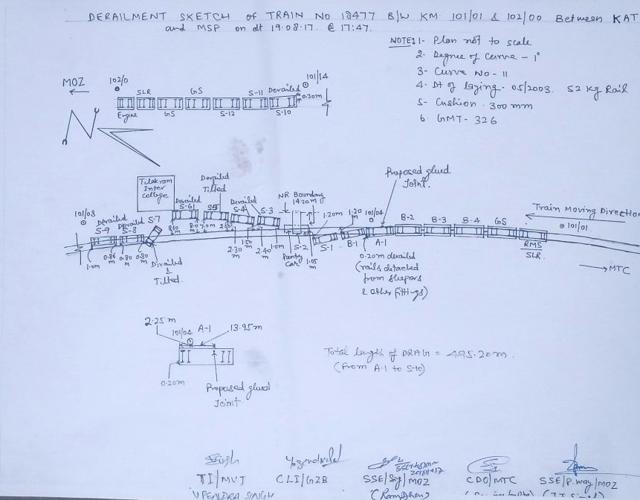 DERAILMENT SKETCH OF TRAIN No 18477 B/W KM 101/01 & 102/00 Between KAT
and MSP on dt 19.08.17. @ 17:47.
NOTES:- 1- Plan not to scale
2- Degree of Curve - 1°
3- Curve No - 11
4- Dt of laying - 05/2003. 52 kg Rail
5- Cushion - 300 mm
6 GMT - 32.6
MOZ
102/0
SLR
GS
S-11
Derailed
0.20m
101/14
Engine
GS
S-12
S-10
Tilakram
Inter
College
Derailed
S-6
Derailed
Tilted
S5
Derailed
S-4
S-3
NR Boundary
1420m
1.20m
1.20
Proposed glued
Joint.
101/08
Derailed
S-9
Derailed
S-8
S-7
Derailed
&
Tilted.
S-2
Pantry
Car
S-1
B-1
101/04
A-1
B-2
B-3
B-4
GS
RMS
SLR
Train Moving Direction
101/01
MTC
1.0m
0.80
m
0.80
m
2.30
m
2.40
m
1.05
m
0.20m derailed
(rails detached
from sleepers
& other fittings)
2.25 m
101/04
A-1
13.95m
0.20m
Proposed glued
Joint
Total length of DRAG = 495.20m.
(From A-1 to S-10)
TI/MUT
CLI/GZB
SSE/Sig/MOZ
CDO/MTC
SSE/P.way/MOZ
UPENDER SINGH